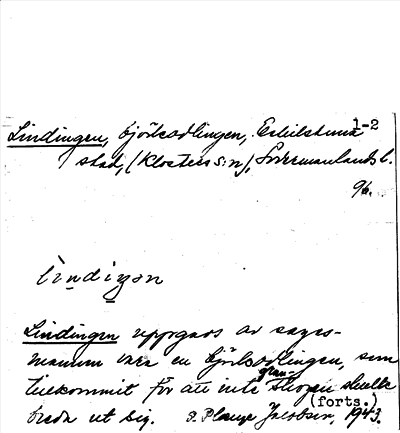 1-2
Lindingen, björkodlingen, Eskilstuna
stad, (Klosters s:n), Södermanlands l.
96.
lindiŋən
Lindingen uppgavs av sages-
mannen vara en björkodlingen, som
tillkommit för att inte gran-skogen skulle
(forts.)
breda ut sig. Jacobsen, 1943.